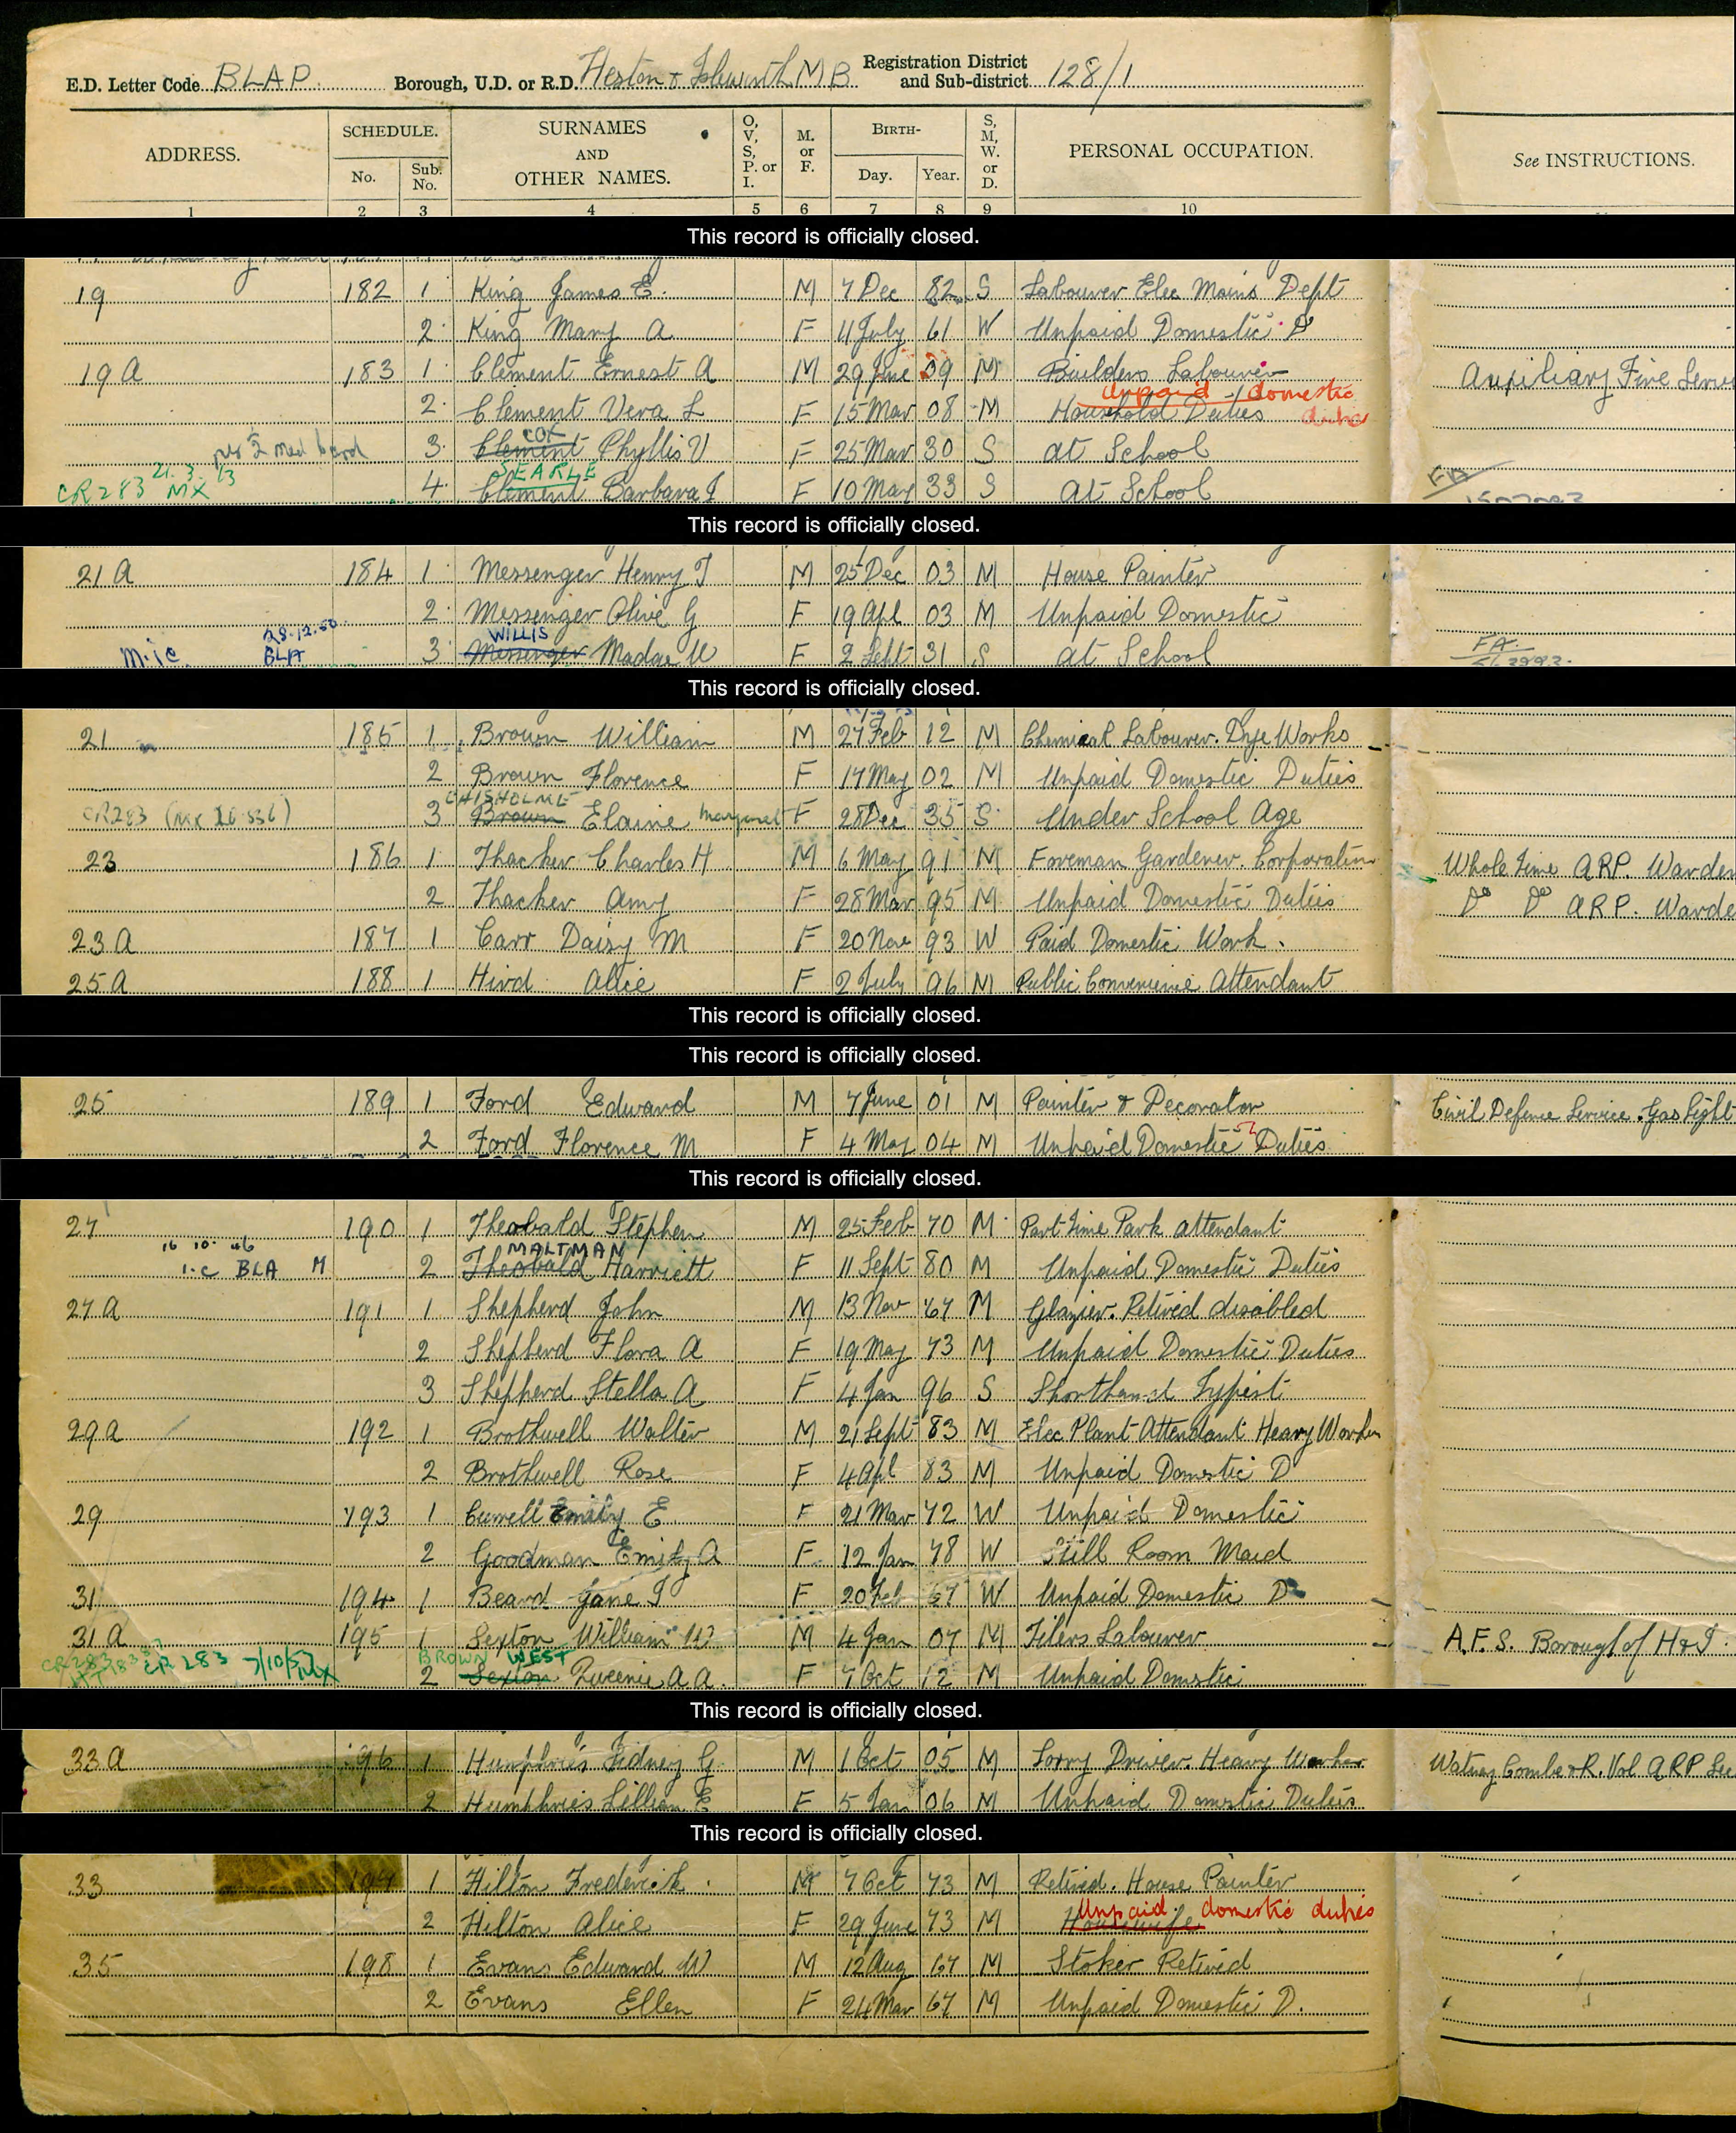 E.D. Letter Code BLAP Borough, U.D. or R.D. Heston & Isleworth M B Registration District and Sub-district 128/1
ADDRESS. SCHEDULE. No. Sub. No. SURNAMES AND OTHER NAMES. O, V, S, P. or I. M. or F. BIRTH- Day. Year. S, M, W. or D. PERSONAL OCCUPATION. See INSTRUCTIONS.
1 2 3 4 5 6 7 8 9 10
This record is officially closed.
19 182 1 King James E. M 7 Dec 82 S Labourer Elec Mains Dept
2 King Mary A F 11 July 61 W Unpaid Domestic D
19 A 183 1 Clement Ernest A M 29 June 09 M Builders Labourer Auxiliary Fire Serv
Unpaid domestic
2 Clement Vera L F 15 Mar 08 M Household Duties duties
COX
3 Clement Phyllis V F 25 Mar 30 S at School
SEARLE
CR283 MX 4 Clement Barbara J F 10 May 33 S at School FA
This record is officially closed.
21 A 184 1 Messenger Henry J M 25 Dec 03 M House Painter
2 Messenger Olive G F 19 Apl 03 M Unpaid Domestic
28.12.50 WILLIS
BLA 3 Messenger Madge W F 2 Sept 31 S at School FA.
This record is officially closed.
21 185 1 Brown William M 27 Feb 12 M Chemical Labourer. Dye Works
2 Brown Florence F 14 May 02 M Unpaid Domestic Duties
CHISHOLME
CR283 3 Brown Elaine Margaret F 28 Dec 35 S Under School Age
23 186 1 Thacker Charles H M 6 May 91 M Foreman Gardener. Corporation Whole Time ARP. Warden
2 Thacker Amy F 28 Mar 95 M Unpaid Domestic Duties Do Do ARP. Warde
23 A 187 1 Carr Daisy M F 20 Nov 93 W Paid Domestic Work.
25 A 188 1 Hird Alice F 2 July 96 M Public Convenience Attendant
This record is officially closed.
This record is officially closed.
25 189 1 Ford Edward M 7 June 01 M Painter & Decorator Civil Defence Service. Gas Light
2 Ford Florence M F 4 May 04 M Unpaid Domestic Duties
This record is officially closed.
27 190 1 Theobald Stephen M 25 Feb 70 M Part Time Park attendant
16 10 46 MALTMAN
BLA M 2 Theobald Harriett F 11 Sept 80 M Unpaid Domestic Duties
27 A 191 1 Shepherd John M 13 Nov 67 M Glazier. Retired disabled
2 Shepherd Flora A F 19 May 73 M Unpaid Domestic Duties
3 Shepherd Stella A F 4 Jan 96 S Shorthand Typist
29 A 192 1 Brothwell Walter M 21 Sept 83 M Elec Plant Attendant Heavy Worker
2 Brothwell Rose F 4 Apl 83 M Unpaid Domestic D
29 193 1 Emily E F 21 Mar 72 W Unpaid Domestic
2 Goodman Emily A F 12 Jan 78 W Still Room Maid
31 194 1 Beard Jane F 20 Feb 67 W Unpaid Domestic D
31 A 195 1 Sexton William W M 4 Jan 07 M Tilers Labourer A.F.S. Borough of H & I
CR 283 7/10/57 MX BROWN WEST
2 Sexton Queenie A A. F 7 Oct 12 M Unpaid Domestic
This record is officially closed.
33 A 196 1 Humphries Sidney G M 1 Oct 05 M Lorry Driver. Heavy Worker Watney Combe & R. Vol ARP
2 Humphries Lillian E F 5 Jan 06 M Unpaid Domestic Duties
This record is officially closed.
33 197 1 Hilton Frederick M 7 Oct 73 M Retired. House Painter
Unpaid domestic duties
2 Hilton Alice F 29 June 73 M Housewife
35 198 1 Evans Edward W M 12 Aug 67 M Stoker Retired
2 Evans Ellen F 24 Mar 67 M Unpaid Domestic D.